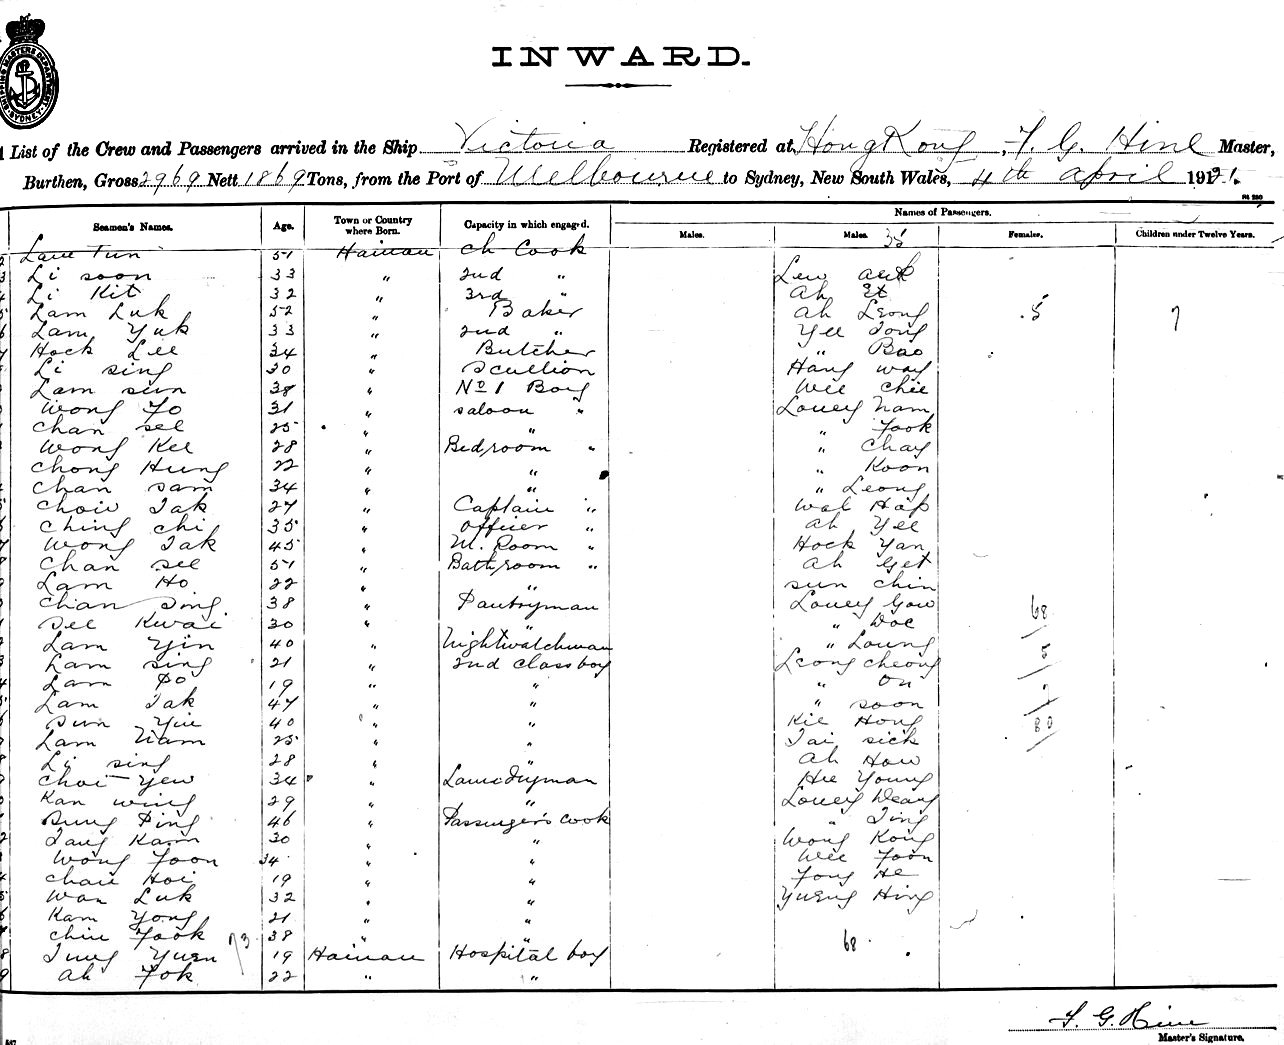 INWARD.
SHIPPING MASTERS DEPARTMENT SYDNEY
List of the Crew and Passengers arrived in the Ship Victoria Registered at Hong Kong, F. G. Hine Master,
Burthen, Gross 2969 Nett 1869 Tons, from the Port of Melbourne to Sydney, New South Wales, 4th April 1921.
Seamen's Names. Age. Town or Country where Born. Capacity in which engaged. Names of Passengers.
Males. Males. Females. Children under Twelve Years.
35
Lam Tun 51 Hainan Ch Cook
Li soon 33 " 2nd " Lew
Li Kit 32 " 3rd " Ah
Lam Luk 52 " Baker Ah Leong 5 7
Lam Yuk 33 " 2nd " Yee Tong
Hock Lee 34 " Butcher " Bao
Li sing 30 " Scullion Hang way
Lam sun 38 " No 1 Boy Wee Chee
Wong Fo 31 " saloon " Louey Nam
Chan see 25 " " " Fook
Wong Kee 28 " Bedroom " " Chay
Chong Hung 22 " " " Koon
Chan sam 34 " " " Leong
Chow Tak 27 " Captain " Wal Hap
Ching chi 35 " officer " ah Yee
Wong Tak 45 " M. Room " Hock Yan
Chan see 51 " Bathroom " ah Get
Lam Ho 22 " " sun chin
Chan sing 38 " Pantryman Louey Gow 68
See Kwai 30 " " " Doe
Lam Yin 40 " Nightwatchman " Loung 5
Lam sing 21 " 2nd class boy Leong cheong
Lam Po 19 " " " On 7
Lam Tak 47 " " " soon
Sun Yiu 40 " " Kie Hong 80
Lam Nam 25 " " Tai sick
Li sing 28 " " ah How
Choi Yew 34 " Laundryman Hee Young
Kan wing 29 " " Louey Deang
Sung Ping 46 " Passenger's cook " Ting
Tang Kam 30 " " Wong Kong
Wong Foon 34 " " Wee Foon
Chau Hoi 19 " " Fong He
Wan Luk 32 " " Yueng Hing
Kam Yong 21 " "
Chiu Fook 73 38 " " 68
Tung Yuen 19 Hainan Hospital boy
Ah Fok 22 " "
F. G. Hine
Master's Signature.